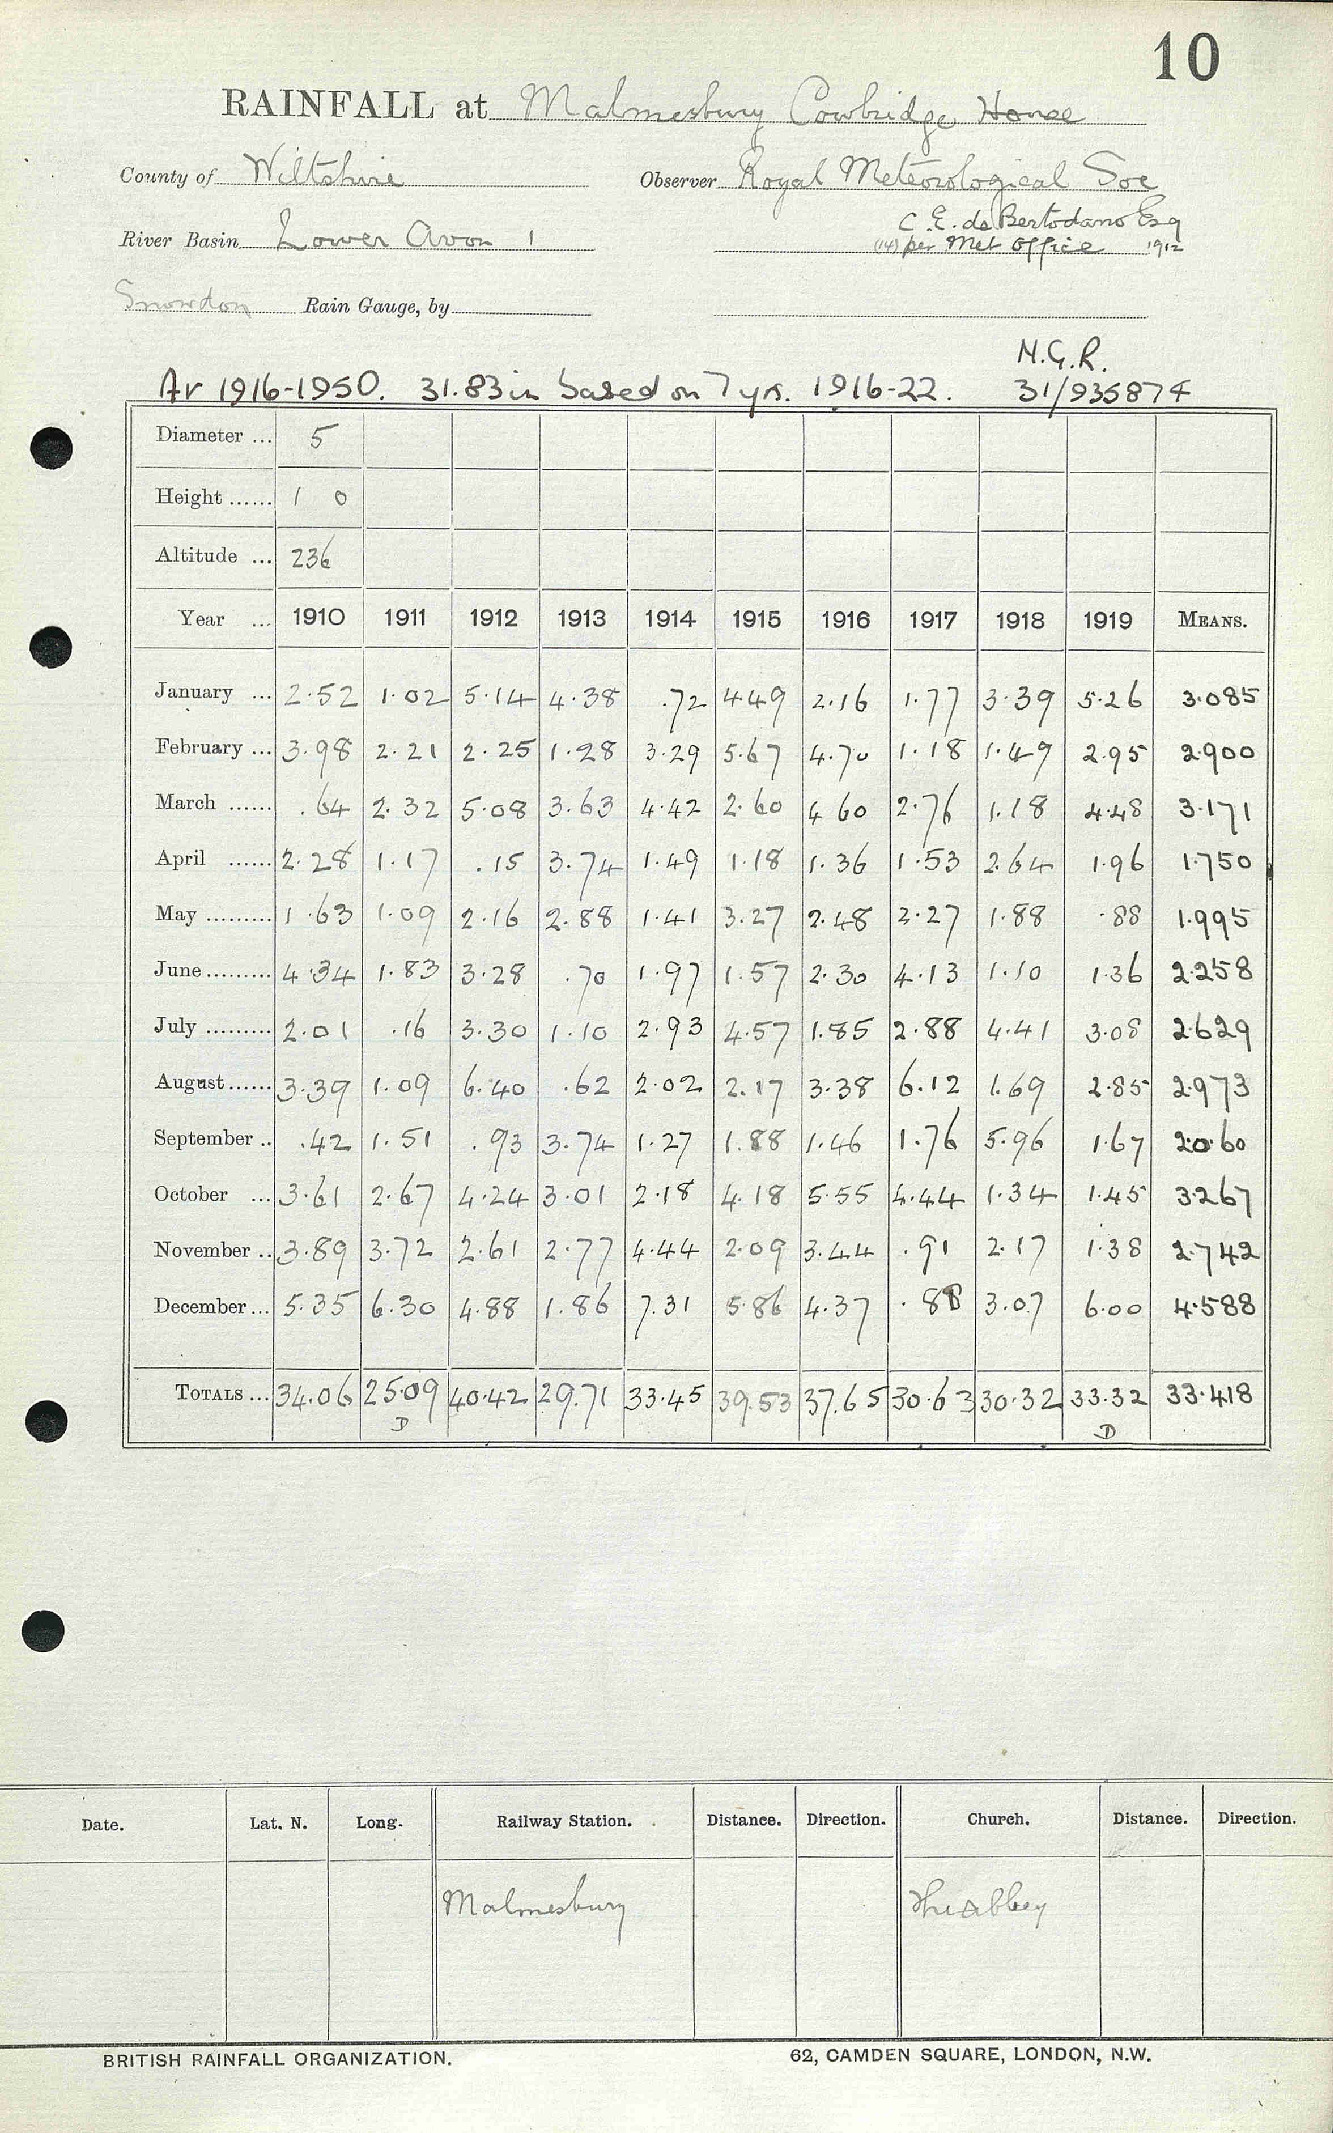 10
RAINFALL at Malmesbury Cowbridge House
County of Wiltshire Observer Royal Meteorological Soc
C. E. de Bertodano Esq
River Basin Lower Avon 1 (14) per Met Office 1912
Snowdon Rain Gauge, by
N.G.R.
Av 1916-1950. 31.83in based on 7 yrs. 1916-22. 31/935874
Diameter ... 5
Height ...... 1 0
Altitude ... 236
Year ... 1910 1911 1912 1913 1914 1915 1916 1917 1918 1919 MEANS.
January ... 2.52 1.02 5.14 4.38 .72 4.49 2.16 1.77 3.39 5.26 3.085
February ... 3.98 2.21 2.25 1.28 3.29 5.67 4.70 1.18 1.49 2.95 2.900
March ...... .64 2.32 5.08 3.63 4.42 2.60 4 60 2.76 1.18 4.48 3.171
April ...... 2.28 1.17 .15 3.74 1.49 1.18 1.36 1.53 2.64 1.96 1.750
May ......... 1.63 1.09 2.16 2.88 1.41 3.27 2.48 2.27 1.88 .88 1.995
June ......... 4.34 1.83 3.28 .70 1.97 1.57 2.30 4.13 1.10 1.36 2.258
July ......... 2.01 .16 3.30 1.10 2.93 4.57 1.85 2.88 4.41 3.08 2.629
August ...... 3.39 1.09 6.40 .62 2.02 2.17 3.38 6.12 1.69 2.85 2.973
September .. .42 1.51 .93 3.74 1.27 1.88 1.46 1.76 5.96 1.67 2.060
October ... 3.61 2.67 4.24 3.01 2.18 4.18 5.55 4.44 1.34 1.45 3.267
November .. 3.89 3.72 2.61 2.77 4.44 2.09 3.44 .91 2.17 1.38 2.742
December ... 5.35 6.30 4.88 1.86 7.31 5.86 4.37 .88 3.07 6.00 4.588
TOTALS ... 34.06 25.09 40.42 29.71 33.45 39.53 37.65 30.63 30.32 33.32 33.418
D D
Date. Lat. N. Long. Railway Station. Distance. Direction. Church. Distance. Direction.
Malmesbury The Abbey
BRITISH RAINFALL ORGANIZATION. 62, CAMDEN SQUARE, LONDON, N.W.